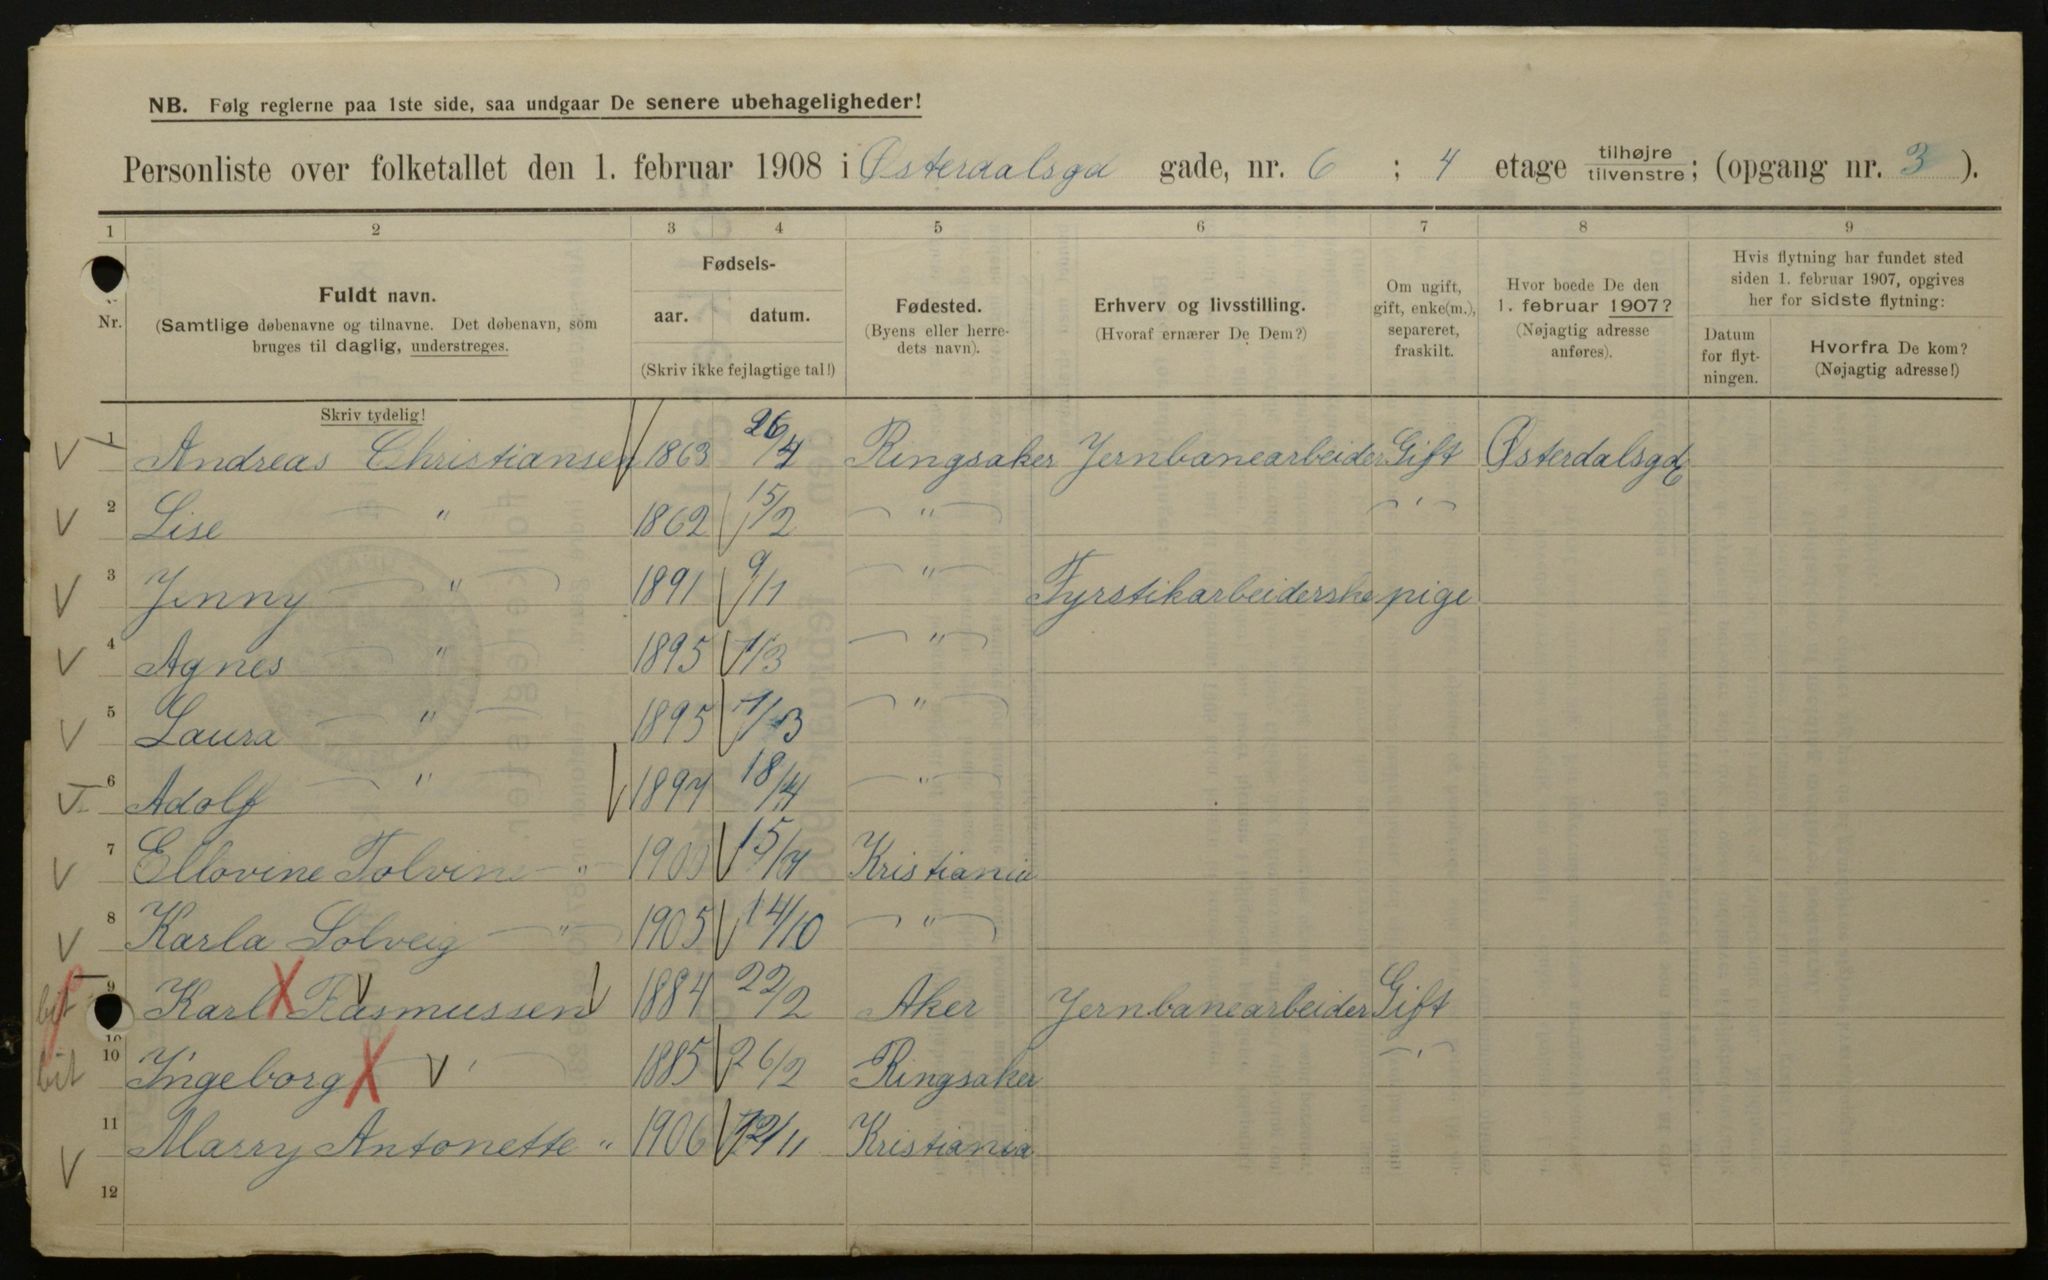 NB. Følg reglerne paa 1ste side, saa undgaar De senere ubehageligheder!
Personliste over folketallet den 1. februar 1908 i Østerdalsgd gade, nr. 6 ; 4 etage tilhøjre tilvenstre; (opgang nr. 3 ).
1 2 3 4 5 6 7 8 9
Nr.
Fuldt navn.
(Samtlige døbenavne og tilnavne. Det døbenavn, som
bruges til daglig, understreges.
Skriv tydelig!
Fødsels-
aar. datum.
(Skriv ikke fejlagtige tal!)
Fødested.
(Byens eller herre-
dets navn).
Erhverv og livsstilling.
(Hvoraf ernærer De Dem?)
Om ugift,
gift, enke(m.),
separeret,
fraskilt.
Hvor boede De den
1. februar 1907?
(Nøjagtig adresse
anføres).
Hvis flytning har fundet sted
siden 1. februar 1907, opgives
her for sidste flytning:
Datum
for flyt-
ningen.
Hvorfra De kom?
(Nøjagtig adresse!)
1 Andreas Christiansen 1863 26/4 Ringsaker Jernbanearbeider Gift Østerdalsgd 6
2 Lise " 1862 15/2 " "
3 Jenny " 1891 9/11 " Fyrstikarbeiderske pige
4 Agnes " 1895 1/3 "
5 Laura " 1895 1/3 "
6 Adolf " 1897 18/4 "
7 Ellovine Tolvine " 1900 15/4 Kristiania
8 Karla Solveig " 1905 14/10 "
bit 9 Karl Rasmussen 1884 22/2 Aker Jernbanearbeider Gift
bit 10 Ingeborg " 1885 26/2 Ringsaker "
11 Marry Antonette " 1906 /11 Kristiania
12